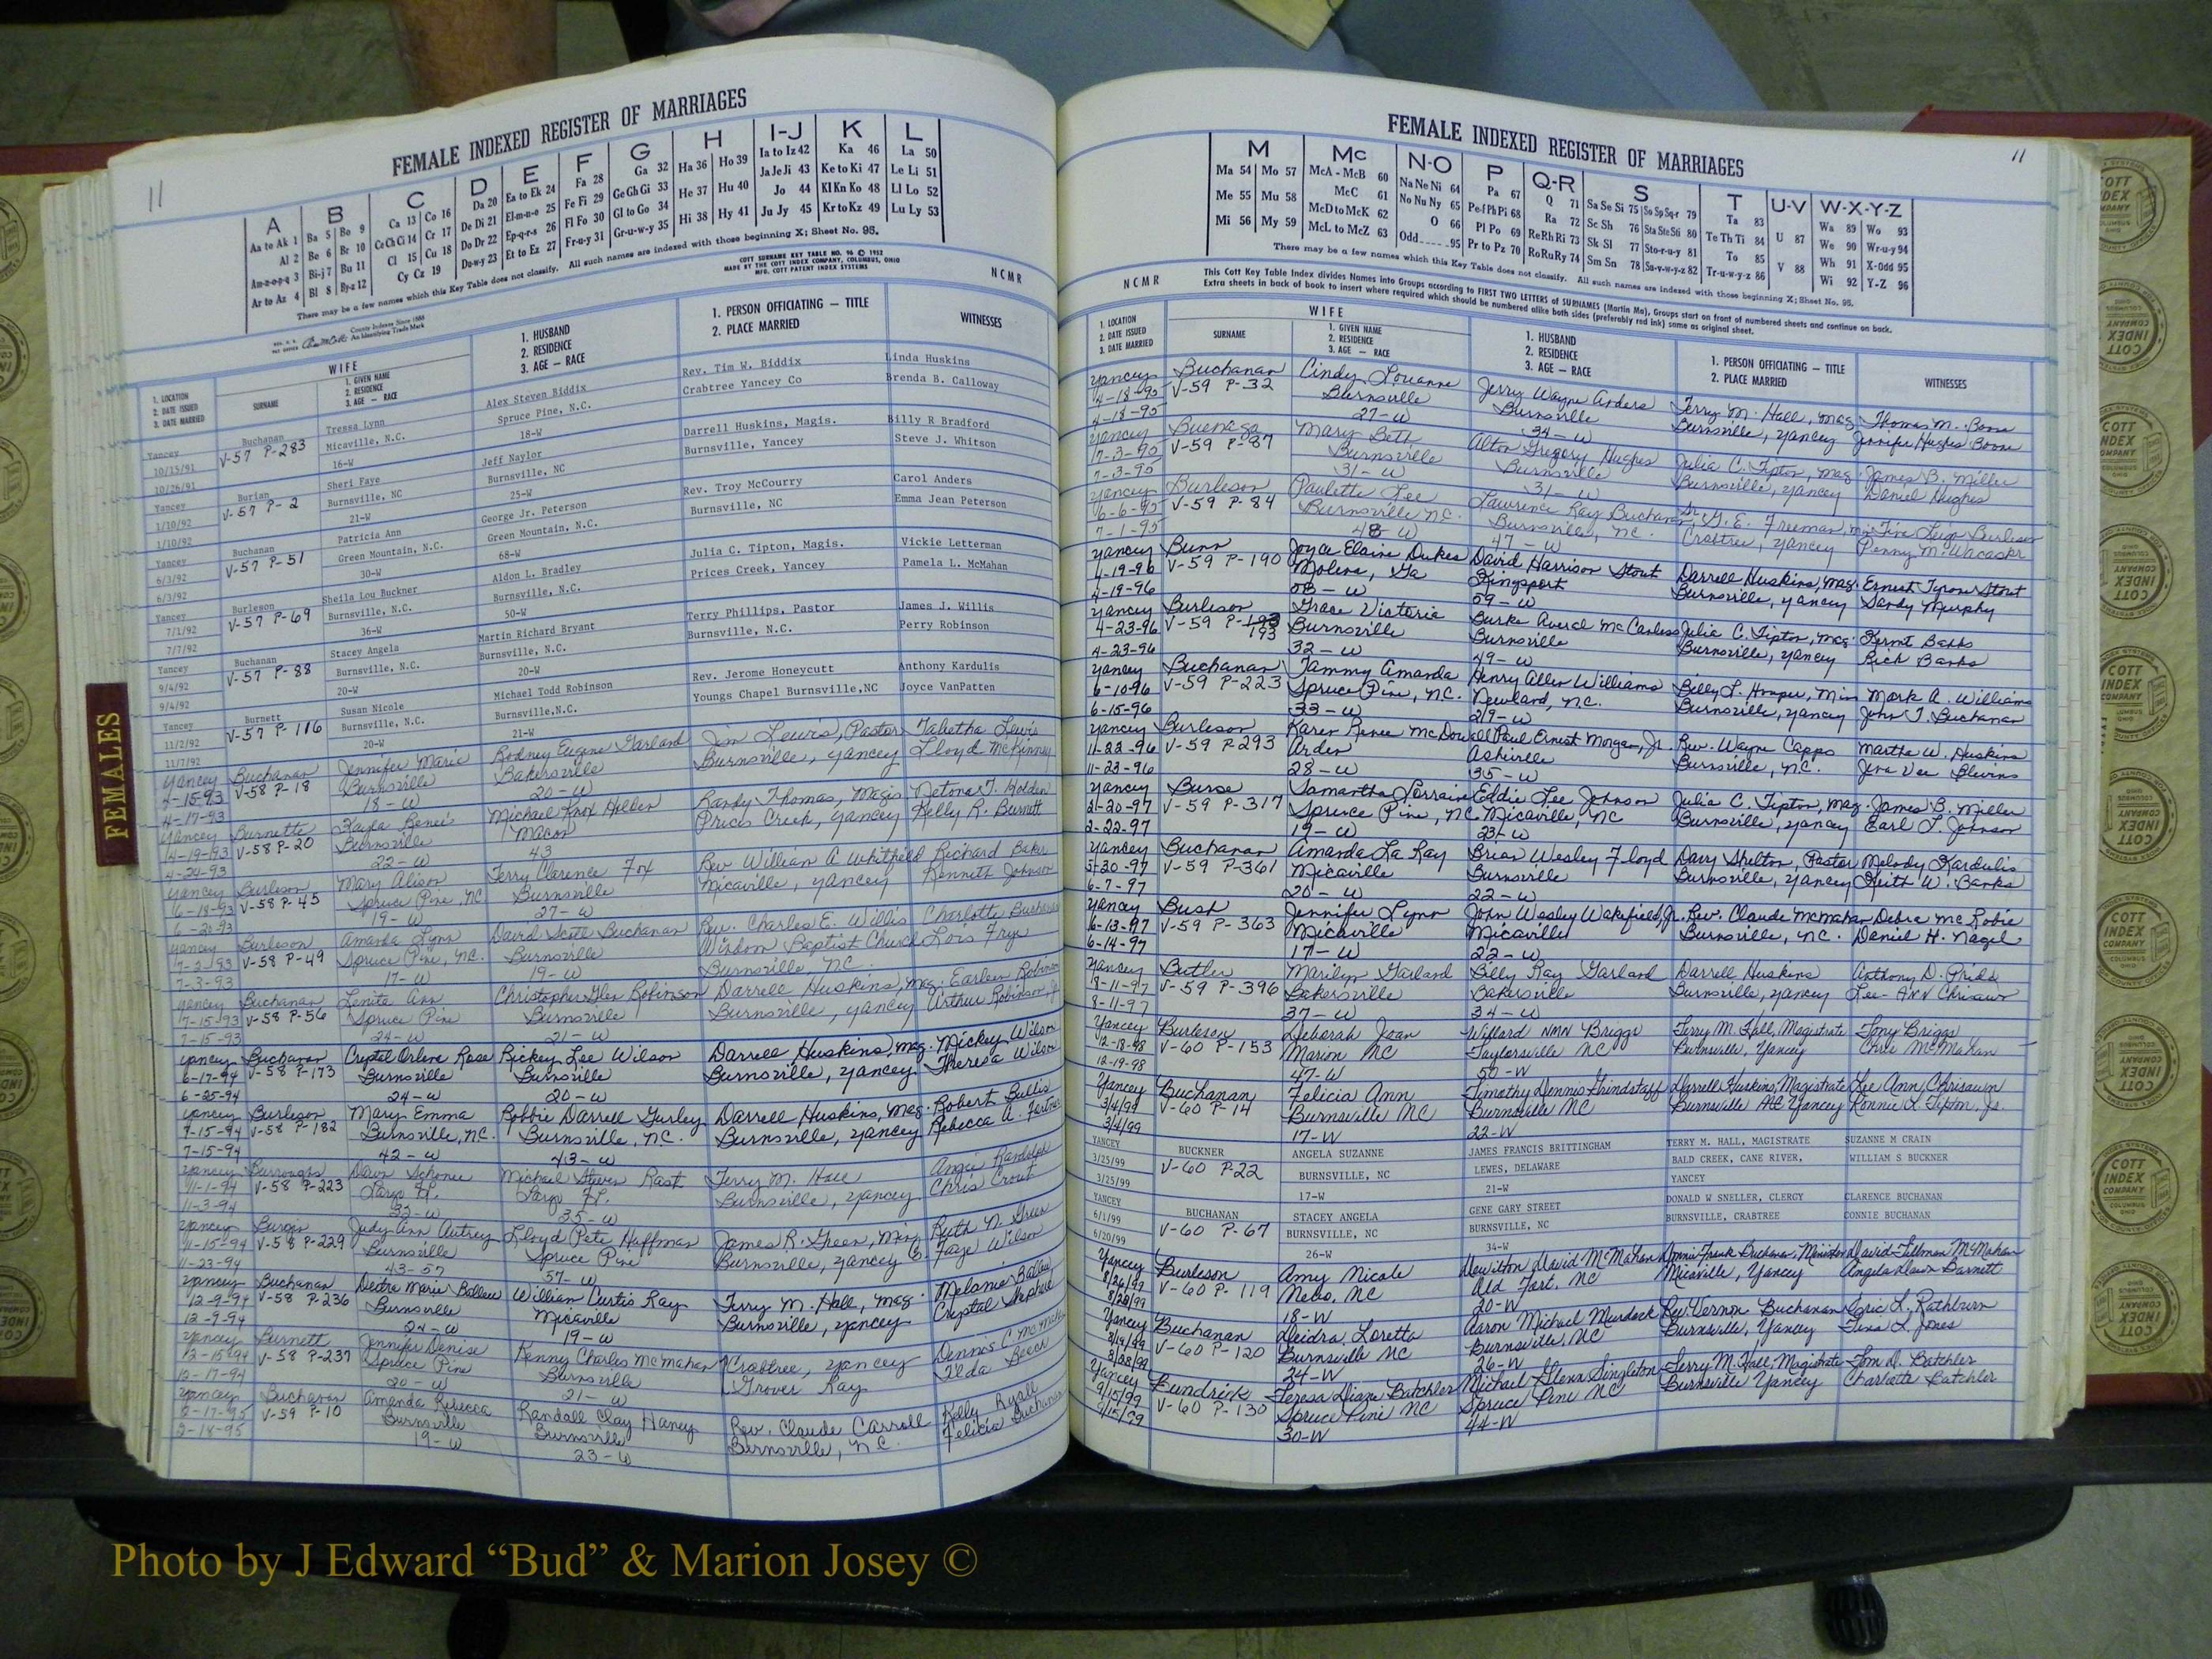 11
FEMALE INDEXED REGISTER OF MARRIAGES
A B C D E F G H I-J K L
Aa to Ak 1 Ba 5 Be 9 Ca 13 Co 16 Da 20 Ea to Ek 24 Fa 28 Ga 32 Ha 36 Ho 39 Ia to Iz 42 Ka 46 La 50
There may be a few names which this Key Table does not classify. All such names are indexed with those beginning X; Sheet No. 95.
COTT SURNAME KEY TABLE NO. 96 © 1952
MADE BY THE COTT INDEX COMPANY, COLUMBUS, OHIO
MFG. COTT PATENT INDEX SYSTEMS
NCMR
1. LOCATION
2. DATE ISSUED
3. DATE MARRIED
WIFE
SURNAME
1. GIVEN NAME
2. RESIDENCE
3. AGE — RACE
1. HUSBAND
2. RESIDENCE
3. AGE — RACE
1. PERSON OFFICIATING — TITLE
2. PLACE MARRIED
WITNESSES
Yancey Buchanan Tressa Lynn Alex Steven Biddix Rev. Tim W. Biddix Linda Huskins
10/15/91 V-57 P-283 Micaville, N.C. Spruce Pine, N.C. Crabtree Yancey Co Brenda B. Calloway
10/26/91 16-W 18-W
Yancey Burian Sheri Faye Jeff Naylor Darrell Huskins, Magis. Billy R Bradford
1/10/92 V-57 P-2 Burnsville, NC Burnsville, NC Burnsville, Yancey Steve J. Whitson
1/10/92 21-W 25-W
Yancey Buchanan Patricia Ann George Jr. Peterson Rev. Troy McCourry Carol Anders
6/3/92 V-57 P-51 Green Mountain, N.C. Green Mountain, N.C. Burnsville, NC Emma Jean Peterson
6/3/92 30-W 68-W
Yancey Burleson Sheila Lou Buckner Aldon L. Bradley Julia C. Tipton, Magis. Vickie Letterman
7/1/92 V-57 P-69 Burnsville, N.C. Burnsville, N.C. Prices Creek, Yancey Pamela L. McMahan
7/7/92 36-W 50-W
Yancey Buchanan Stacey Angela Martin Richard Bryant Terry Phillips, Pastor James J. Willis
9/4/92 V-57 P-88 Burnsville, N.C. Burnsville, N.C. Burnsville, N.C. Perry Robinson
9/4/92 20-W 20-W
Yancey Burnett Susan Nicole Michael Todd Robinson Rev. Jerome Honeycutt Anthony Kardulis
11/2/92 V-57 P-116 Burnsville, N.C. Burnsville,N.C. Youngs Chapel Burnsville,NC Joyce VanPatten
11/7/92 20-W 21-W
Yancey Buchanan Jennifer Marie Rodney Eugene Garland Jim Lewis, Pastor Tabetha Lewis
2-15-93 V-58 P-18 Burnsville Bakersville Burnsville, Yancey Lloyd McKinney
4-17-93 18-W 20-W
Yancey Burnette Kayla Renee Michael Knox Holden Randy Thomas, Magis
4-19-93 V-58 P-20 Burnsville Macon Prices Creek, Yancey Kelly R. Burnett
4-24-93 22-W 43
Yancey Burleson Mary Alison Terry Clarence Fox Rev William A Whitfield Richard Baker
6-18-93 V-58 P-45 Spruce Pine, NC Burnsville Micaville, Yancey Kenneth Johnson
6-20-93 19-W 27-W
Yancey Burleson Amanda Lynn David Scott Buchanan Rev. Charles E. Willis Charlotte
7-2-93 V-58 P-49 Spruce Pine, NC. Burnsville Wisdom Baptist Church Lois Frye
7-3-93 17-W 19-W Burnsville, NC.
Yancey Buchanan Lenita Ann Christopher Glen Robinson Darrell Huskins, Mag.
7-15-93 V-58 P-56 Spruce Pine Burnsville Burnsville, Yancey Arthur Robinson
7-15-93 24-W 21-W
Yancey Buchanan Crystal Orlene Rose Rickey Lee Wilson Darrell Huskins, Mag. Mickey Wilson
6-17-94 V-58 P-173 Burnsville Burnsville Burnsville, Yancey Theresa Wilson
6-25-94 24-W 20-W
Yancey Burleson Mary Emma Robbie Darrell Gurley Darrell Huskins, Mag. Robert Bullis
7-15-94 V-58 P-182 Burnsville, NC. Burnsville, N.C. Burnsville, Yancey Rebecca A.
7-15-94 42-W 43-W
Yancey Burroughs Dawn Michael Steven Rast Terry M. Hall Angie Randolph
11-1-94 V-58 P-223 Largo Fl. Largo Fl. Burnsville, Yancey Chris Crout
11-3-94 32-W 35-W
Yancey Judy Ann Autrey Lloyd Pete Huffman James R. Green, Min Ruth N. Green
11-15-94 V-58 P-229 Burnsville Spruce Pine Burnsville, Yancey Faye Wilson
11-23-94 43-57 57-W
Yancey Buchanan Deidra Marie Ballew William Curtis Ray Terry M. Hall, Mag. Melanie
12-9-94 V-58 P-236 Burnsville Micaville Burnsville, Yancey Crystal
12-9-94 24-W 19-W
Yancey Burnett Jennifer Denise Kenny Charles McMahan Crabtree, Yancey Dennis C
12-15-94 V-58 P-237 Spruce Pine Burnsville Grover Ray
12-17-94 20-W 21-W
Yancey Buchanan Amanda Rebecca Randall Clay Haney Rev. Claude Carroll Kelly
2-17-95 V-59 P-10 Burnsville Burnsville Burnsville, NC. Felicia Buchanan
2-18-95 19-W 23-W
FEMALES
FEMALE INDEXED REGISTER OF MARRIAGES
11
M Mc N-O P Q-R S T U-V W-X-Y-Z
There may be a few names which this Key Table does not classify. All such names are indexed with those beginning X; Sheet No. 95.
NCMR
This Cott Key Table Index divides Names into Groups according to FIRST TWO LETTERS of SURNAMES (Martin Ma), Groups start on front of numbered sheets and continue on back.
Extra sheets in back of book to insert where required which should be numbered alike both sides (preferably red ink) same as original sheet.
1. LOCATION
2. DATE ISSUED
3. DATE MARRIED
WIFE
SURNAME
1. GIVEN NAME
2. RESIDENCE
3. AGE — RACE
1. HUSBAND
2. RESIDENCE
3. AGE — RACE
1. PERSON OFFICIATING — TITLE
2. PLACE MARRIED
WITNESSES
Yancey Buchanan Cindy Louanne Jerry Wayne Anders Terry M. Hall, Mag Thomas M. Boone
4-18-95 V-59 P-32 Burnsville Burnsville Burnsville, Yancey Jennifer Hughes Boone
4-18-95 27-W 34-W
Yancey Mary Beth Alton Gregory Hughes Julia C. Tipton, Mag. James B. Miller
7-3-95 V-59 P-87 Burnsville Burnsville Burnsville, Yancey Daniel Hughes
7-3-95 31-W 31-W
Yancey Burleson Paulette Lee Lawrence Ray Buchanan, Sr. G. E. Freeman, Min
6-6-95 V-59 P-84 Burnsville NC. Burnsville, NC. Crabtree, Yancey Penny
7-1-95 48-W 47-W
Yancey Bunn Joyce Elaine Dukes David Harrison Stout Darrell Huskins, Mag. Ernest Tyrone Stout
4-19-96 V-59 P-190 Molena, Ga Kingsport Burnsville, Yancey Sandy Murphy
4-19-96 58-W 59-W
Yancey Burleson Grace Victoria Burke Averal McCanless Julia C. Tipton, Mag. Kermit Banks
4-23-96 V-59 P-193 Burnsville Burnsville Burnsville, Yancey Rick Banks
4-23-96 32-W 49-W
Yancey Buchanan Tammy Amanda Henry Allen Williams Billy L. Hooper, Min Mark A. Williams
6-10-96 V-59 P-223 Spruce Pine, NC. Newland, NC. Burnsville, Yancey John T. Buchanan
6-15-96 33-W 29-W
Yancey Burleson Karen Renee McDowell Paul Ernest Morgan, Jr. Rev. Wayne Capps Martha W. Huskins
11-22-96 V-59 P-293 Arden Asheville Burnsville, N.C. Jena Dee Blevins
11-23-96 28-W 35-W
Yancey Samantha Lorraine Eddie Lee Johnson Julia C. Tipton, Mag. James B. Miller
2-20-97 V-59 P-317 Spruce Pine, NC Micaville, NC Burnsville, Yancey Earl L. Johnson
2-22-97 19-W 23-W
Yancey Buchanan Amanda La Ray Brian Wesley Floyd Davy Shelton, Pastor Melody Kardulis
5-20-97 V-59 P-361 Micaville Burnsville Burnsville, Yancey Keith W. Banks
6-7-97 20-W 22-W
Yancey Bush Jennifer Lynn John Wesley Wakefield, Jr. Rev. Claude McMahan Debra
6-13-97 V-59 P-363 Micaville Micaville Burnsville, NC. Daniel H. Nagel
6-14-97 17-W 22-W
Yancey Butler Marilyn Garland Billy Ray Garland Darrell Huskins Anthony D.
8-11-97 V-59 P-396 Bakersville Bakersville Burnsville, Yancey Lee-Ann Chrisawn
8-11-97 37-W 34-W
Yancey Burleson Deborah Joan Willard NMN Briggs Terry M. Hall, Magistrate Tony Briggs
12-18-98 V-60 P-153 Marion NC Taylorsville NC Burnsville, Yancey Chris McMahan
12-19-98 47-W 50-W
Yancey Buchanan Felicia Ann Timothy Dennis Grindstaff Darrell Huskins, Magistrate Lee Ann Chrisawn
3/4/99 V-60 P-14 Burnsville NC Burnsville NC Burnsville NC Yancey Ronnie L. Tipton, Jr.
3/4/99 17-W 22-W
YANCEY BUCKNER ANGELA SUZANNE JAMES FRANCIS BRITTINGHAM TERRY M. HALL, MAGISTRATE SUZANNE M CRAIN
3/25/99 V-60 P-22 BURNSVILLE, NC LEWES, DELAWARE BALD CREEK, CANE RIVER, WILLIAM S BUCKNER
3/25/99 17-W 21-W YANCEY
YANCEY BUCHANAN STACEY ANGELA GENE GARY STREET DONALD W SNELLER, CLERGY CLARENCE BUCHANAN
6/1/99 V-60 P-67 BURNSVILLE, NC BURNSVILLE, NC BURNSVILLE, CRABTREE CONNIE BUCHANAN
6/20/99 26-W 34-W
Yancey Burleson Amy Nicole Dewilton David McMahan Donnie Frank Buchanan, Minister David Tillman McMahan
8/26/99 V-60 P-119 Nebo, NC Old Fort, NC Micaville, Yancey Angela Dawn Barnett
8/28/99 18-W 20-W
Yancey Buchanan Deidra Loretta Aaron Michael Murdock Rev. Vernon Buchanan Eric L. Rathburn
8/19/99 V-60 P-120 Burnsville NC Burnsville, NC Burnsville, Yancey Tina L. Jones
8/28/99 24-W 26-W
Yancey Bundrick Teresa Diane Batchler Michael Glenn Singleton Terry M. Hall, Magistrate Tom D. Batchler
9/15/99 V-60 P-130 Spruce Pine NC Spruce Pine NC Burnsville Yancey Charlotte Batchler
9/15/99 30-W 44-W
Photo by J Edward “Bud” & Marion Josey ©